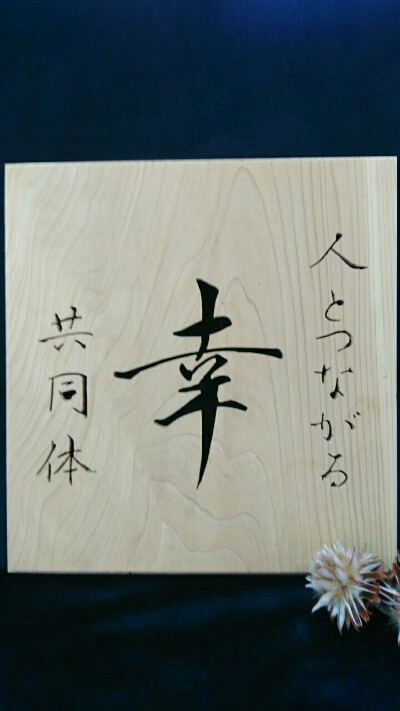 人とつながる
幸
共同体